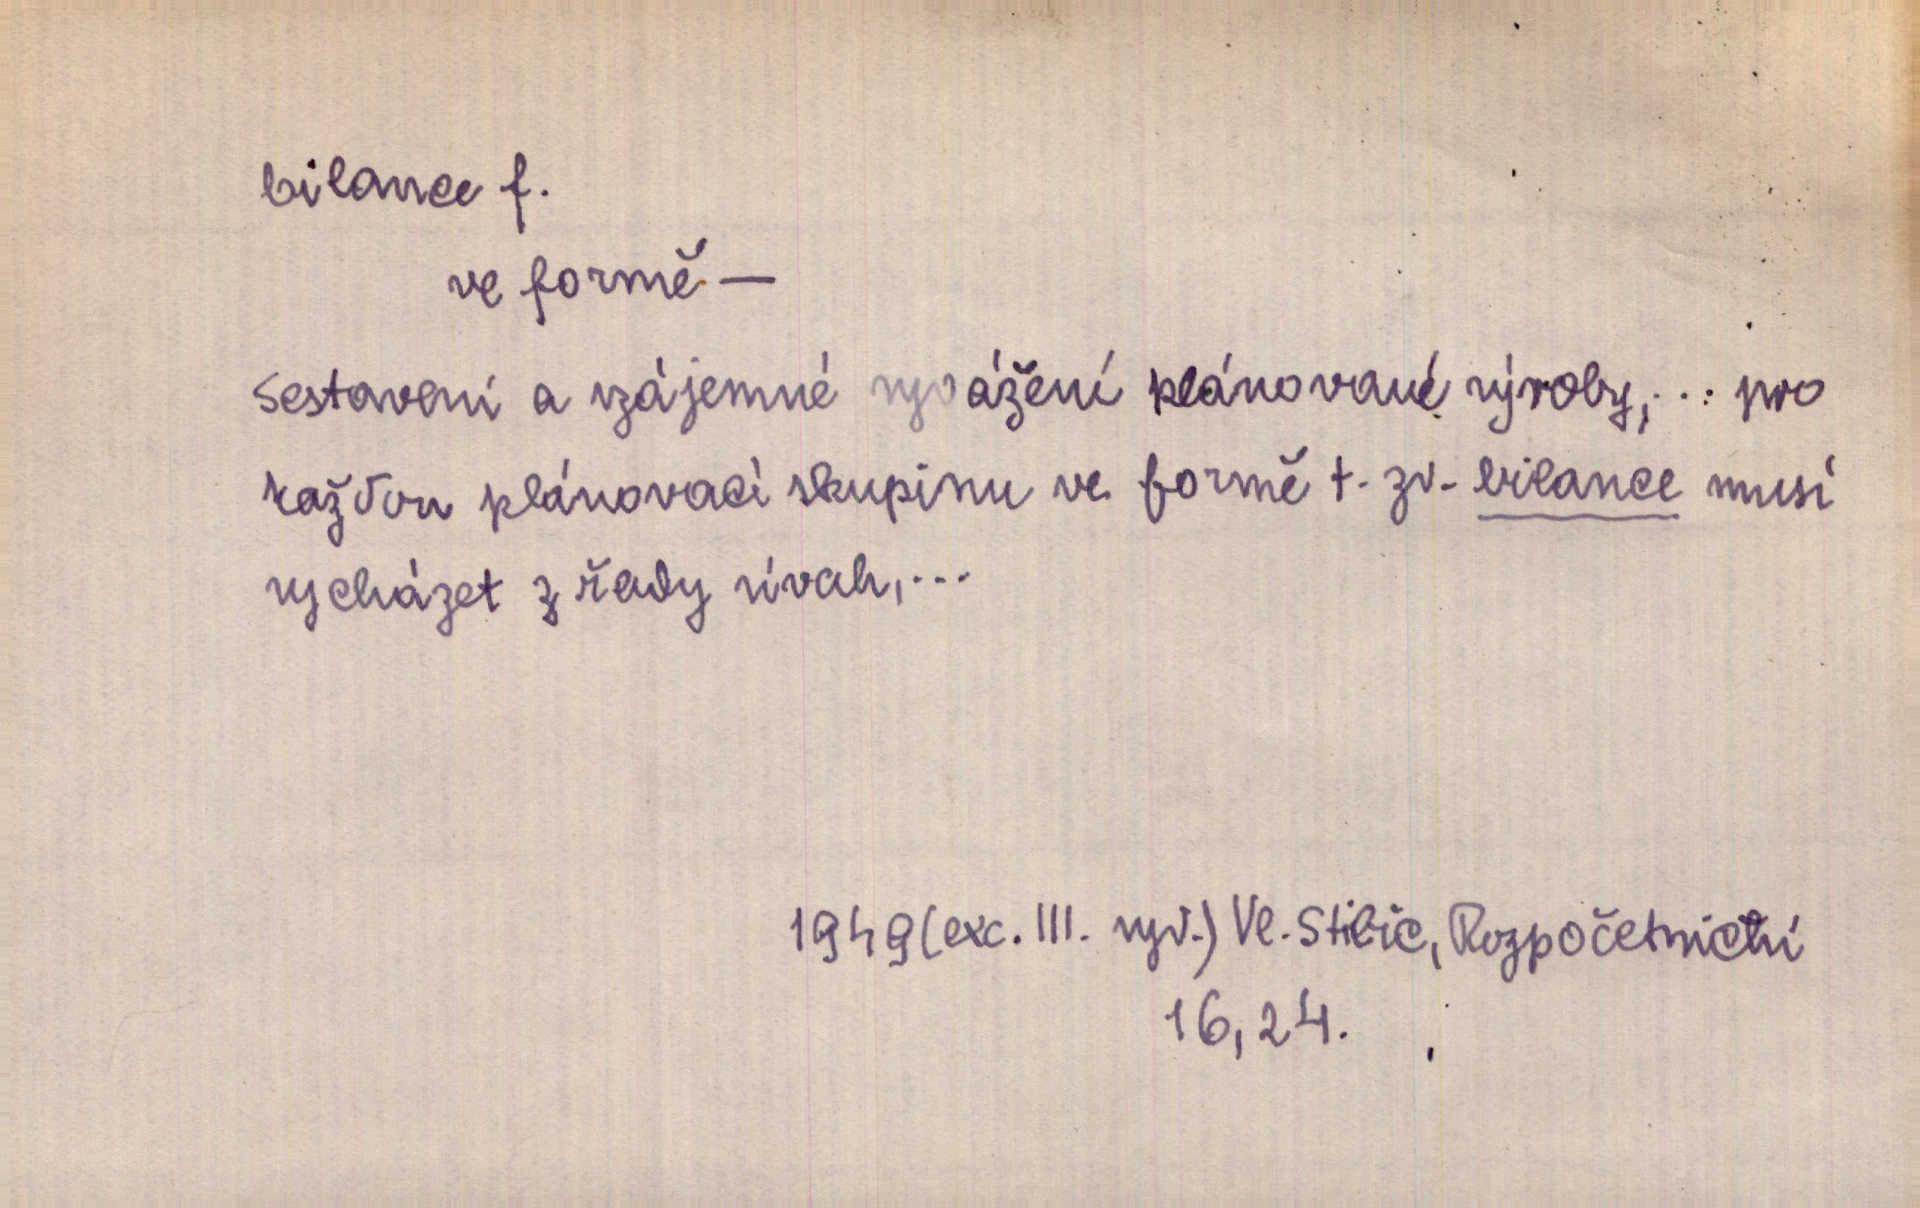 bilance f.
ve formě —
Sestavení a vzájemné vyvážení plánované výroby,... pro
každou plánovací skupinu ve formě t. zv. bilance musí
vycházet z řady úvah,...
1949 (exc. III. vyd.) Vl. Stibic, Rozpočetnictví
16,24.